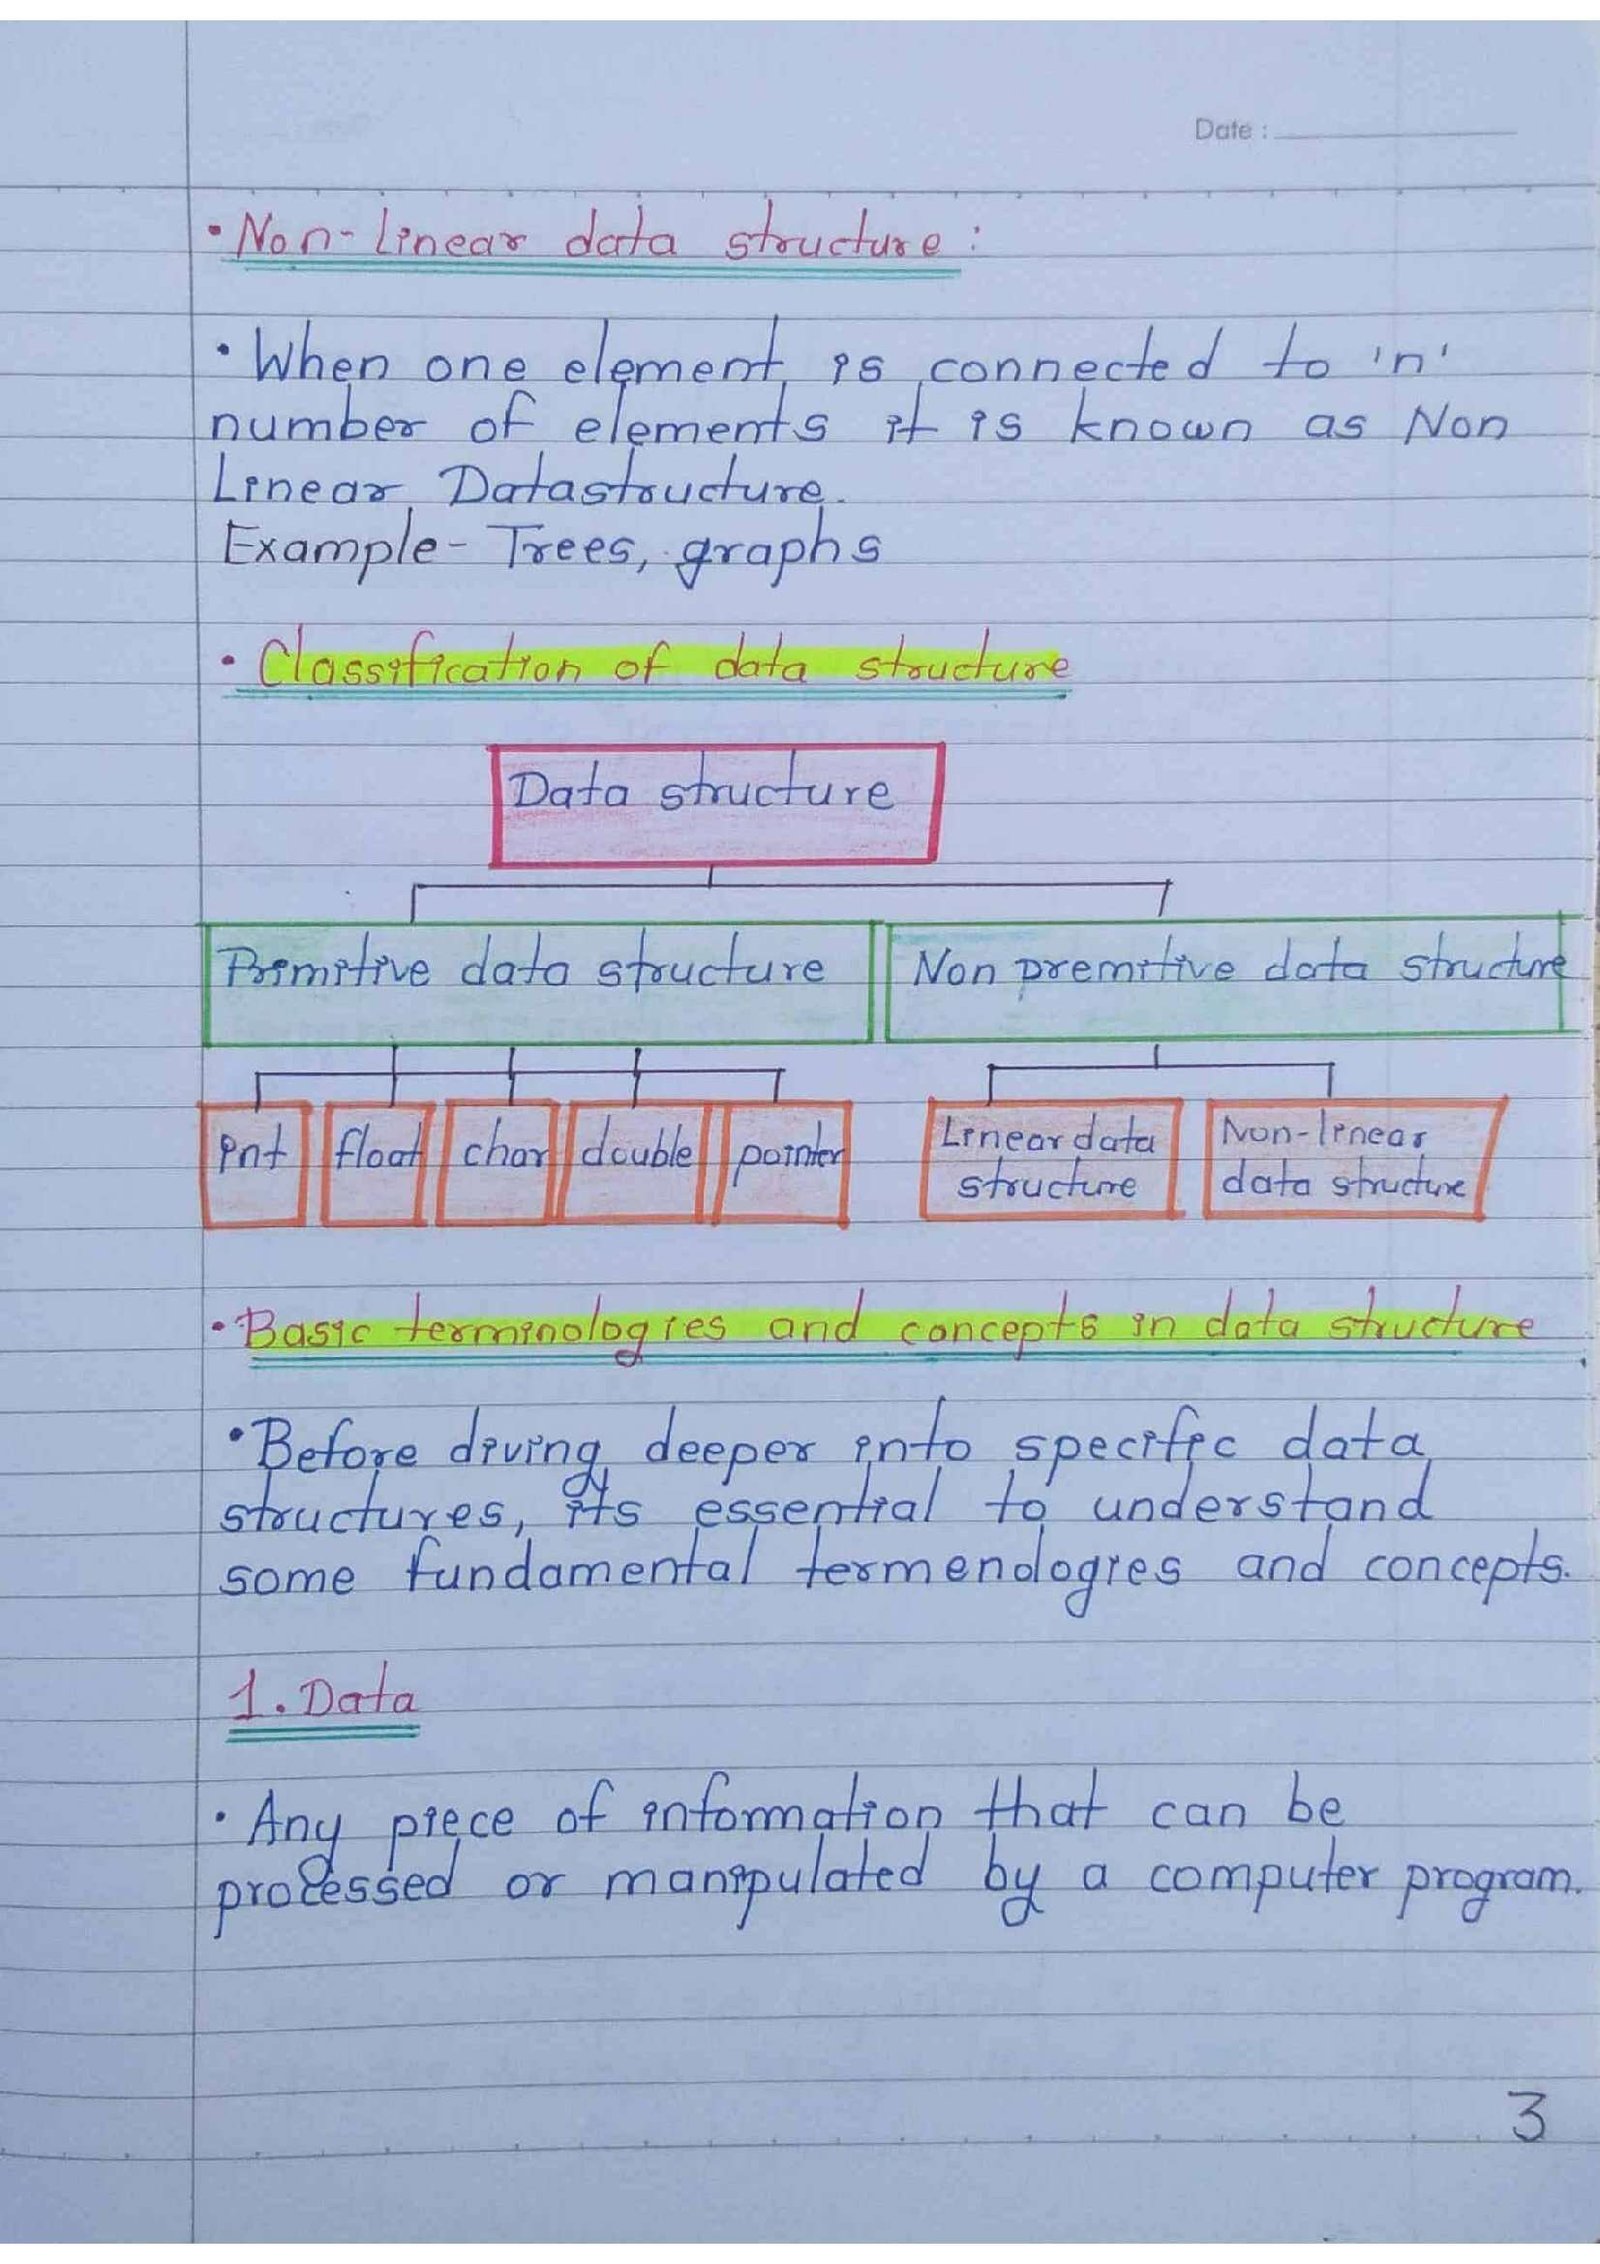 Date :
• Non-linear data structure :
• When one element is connected to 'n'
number of elements it is known as Non
Linear Datastructure.
Example - Trees, graphs
• Classification of data structure
Data structure
Primitive data structure
Non premitive data structure
int
float
char
double
pointer
Linear data
structure
Non-linear
data structure
• Basic terminologies and concepts in data structure
• Before diving deeper into specific data
structures, its essential to understand
some fundamental termenologies and concepts.
1. Data
• Any piece of information that can be
processed or manipulated by a computer program.
3